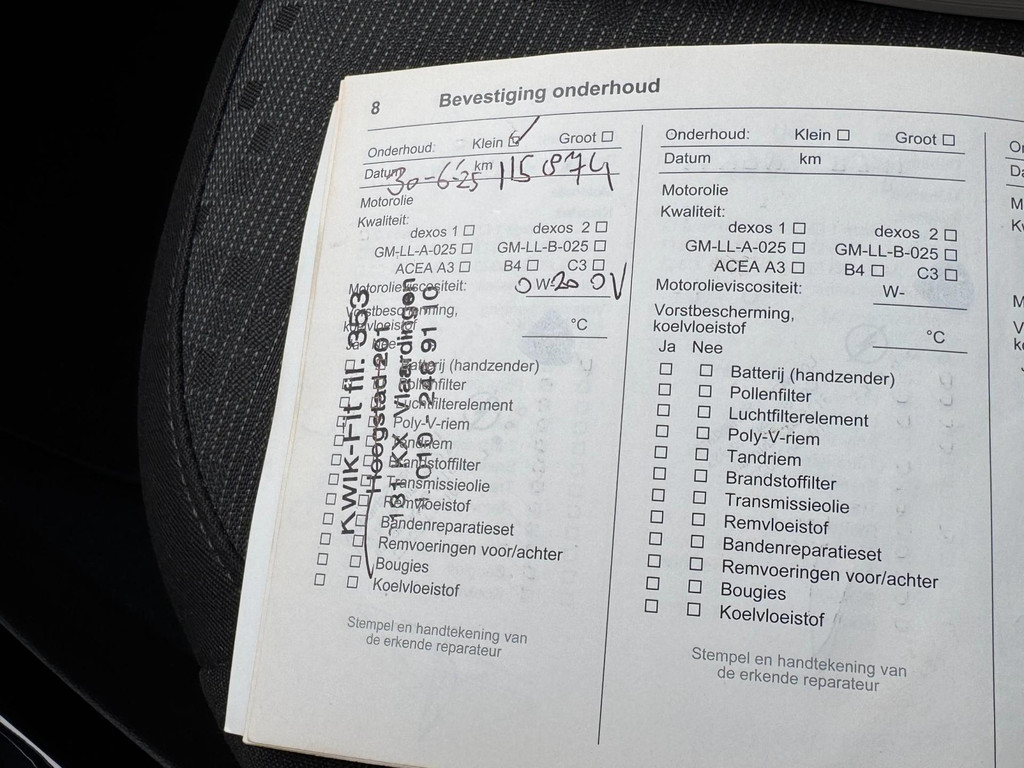 8 Bevestiging onderhoud
Onderhoud: Klein ☑ Groot ☐
Datum 30-6-25 km 115 874
Motorolie
Kwaliteit:
dexos 1 ☐ dexos 2 ☐
GM-LL-A-025 ☐ GM-LL-B-025 ☐
ACEA A3 ☐ B4 ☐ C3 ☐
Motorolieviscositeit: 0 W-20 OV
Vorstbescherming,
koelvloeistof °C
Ja Nee
☐ ☐ Batterij (handzender)
☐ ☐ Pollenfilter
☐ ☐ Luchtfilterelement
☐ ☐ Poly-V-riem
☐ ☐ Tandriem
☐ ☐ Brandstoffilter
☐ ☐ Transmissieolie
☐ ☐ Remvloeistof
☐ ☐ Bandenreparatieset
☐ ☐ Remvoeringen voor/achter
☐ ☐ Bougies
☐ ☐ Koelvloeistof
Stempel en handtekening van
de erkende reparateur
Kwik-Fit fil. 353
Hoogstad 261
3131 KX Vlaardingen
010 - 246 91 10
Onderhoud: Klein ☐ Groot ☐
Datum km
Motorolie
Kwaliteit:
dexos 1 ☐ dexos 2 ☐
GM-LL-A-025 ☐ GM-LL-B-025 ☐
ACEA A3 ☐ B4 ☐ C3 ☐
Motorolieviscositeit: W-
Vorstbescherming,
koelvloeistof °C
Ja Nee
☐ ☐ Batterij (handzender)
☐ ☐ Pollenfilter
☐ ☐ Luchtfilterelement
☐ ☐ Poly-V-riem
☐ ☐ Tandriem
☐ ☐ Brandstoffilter
☐ ☐ Transmissieolie
☐ ☐ Remvloeistof
☐ ☐ Bandenreparatieset
☐ ☐ Remvoeringen voor/achter
☐ ☐ Bougies
☐ ☐ Koelvloeistof
Stempel en handtekening van
de erkende reparateur